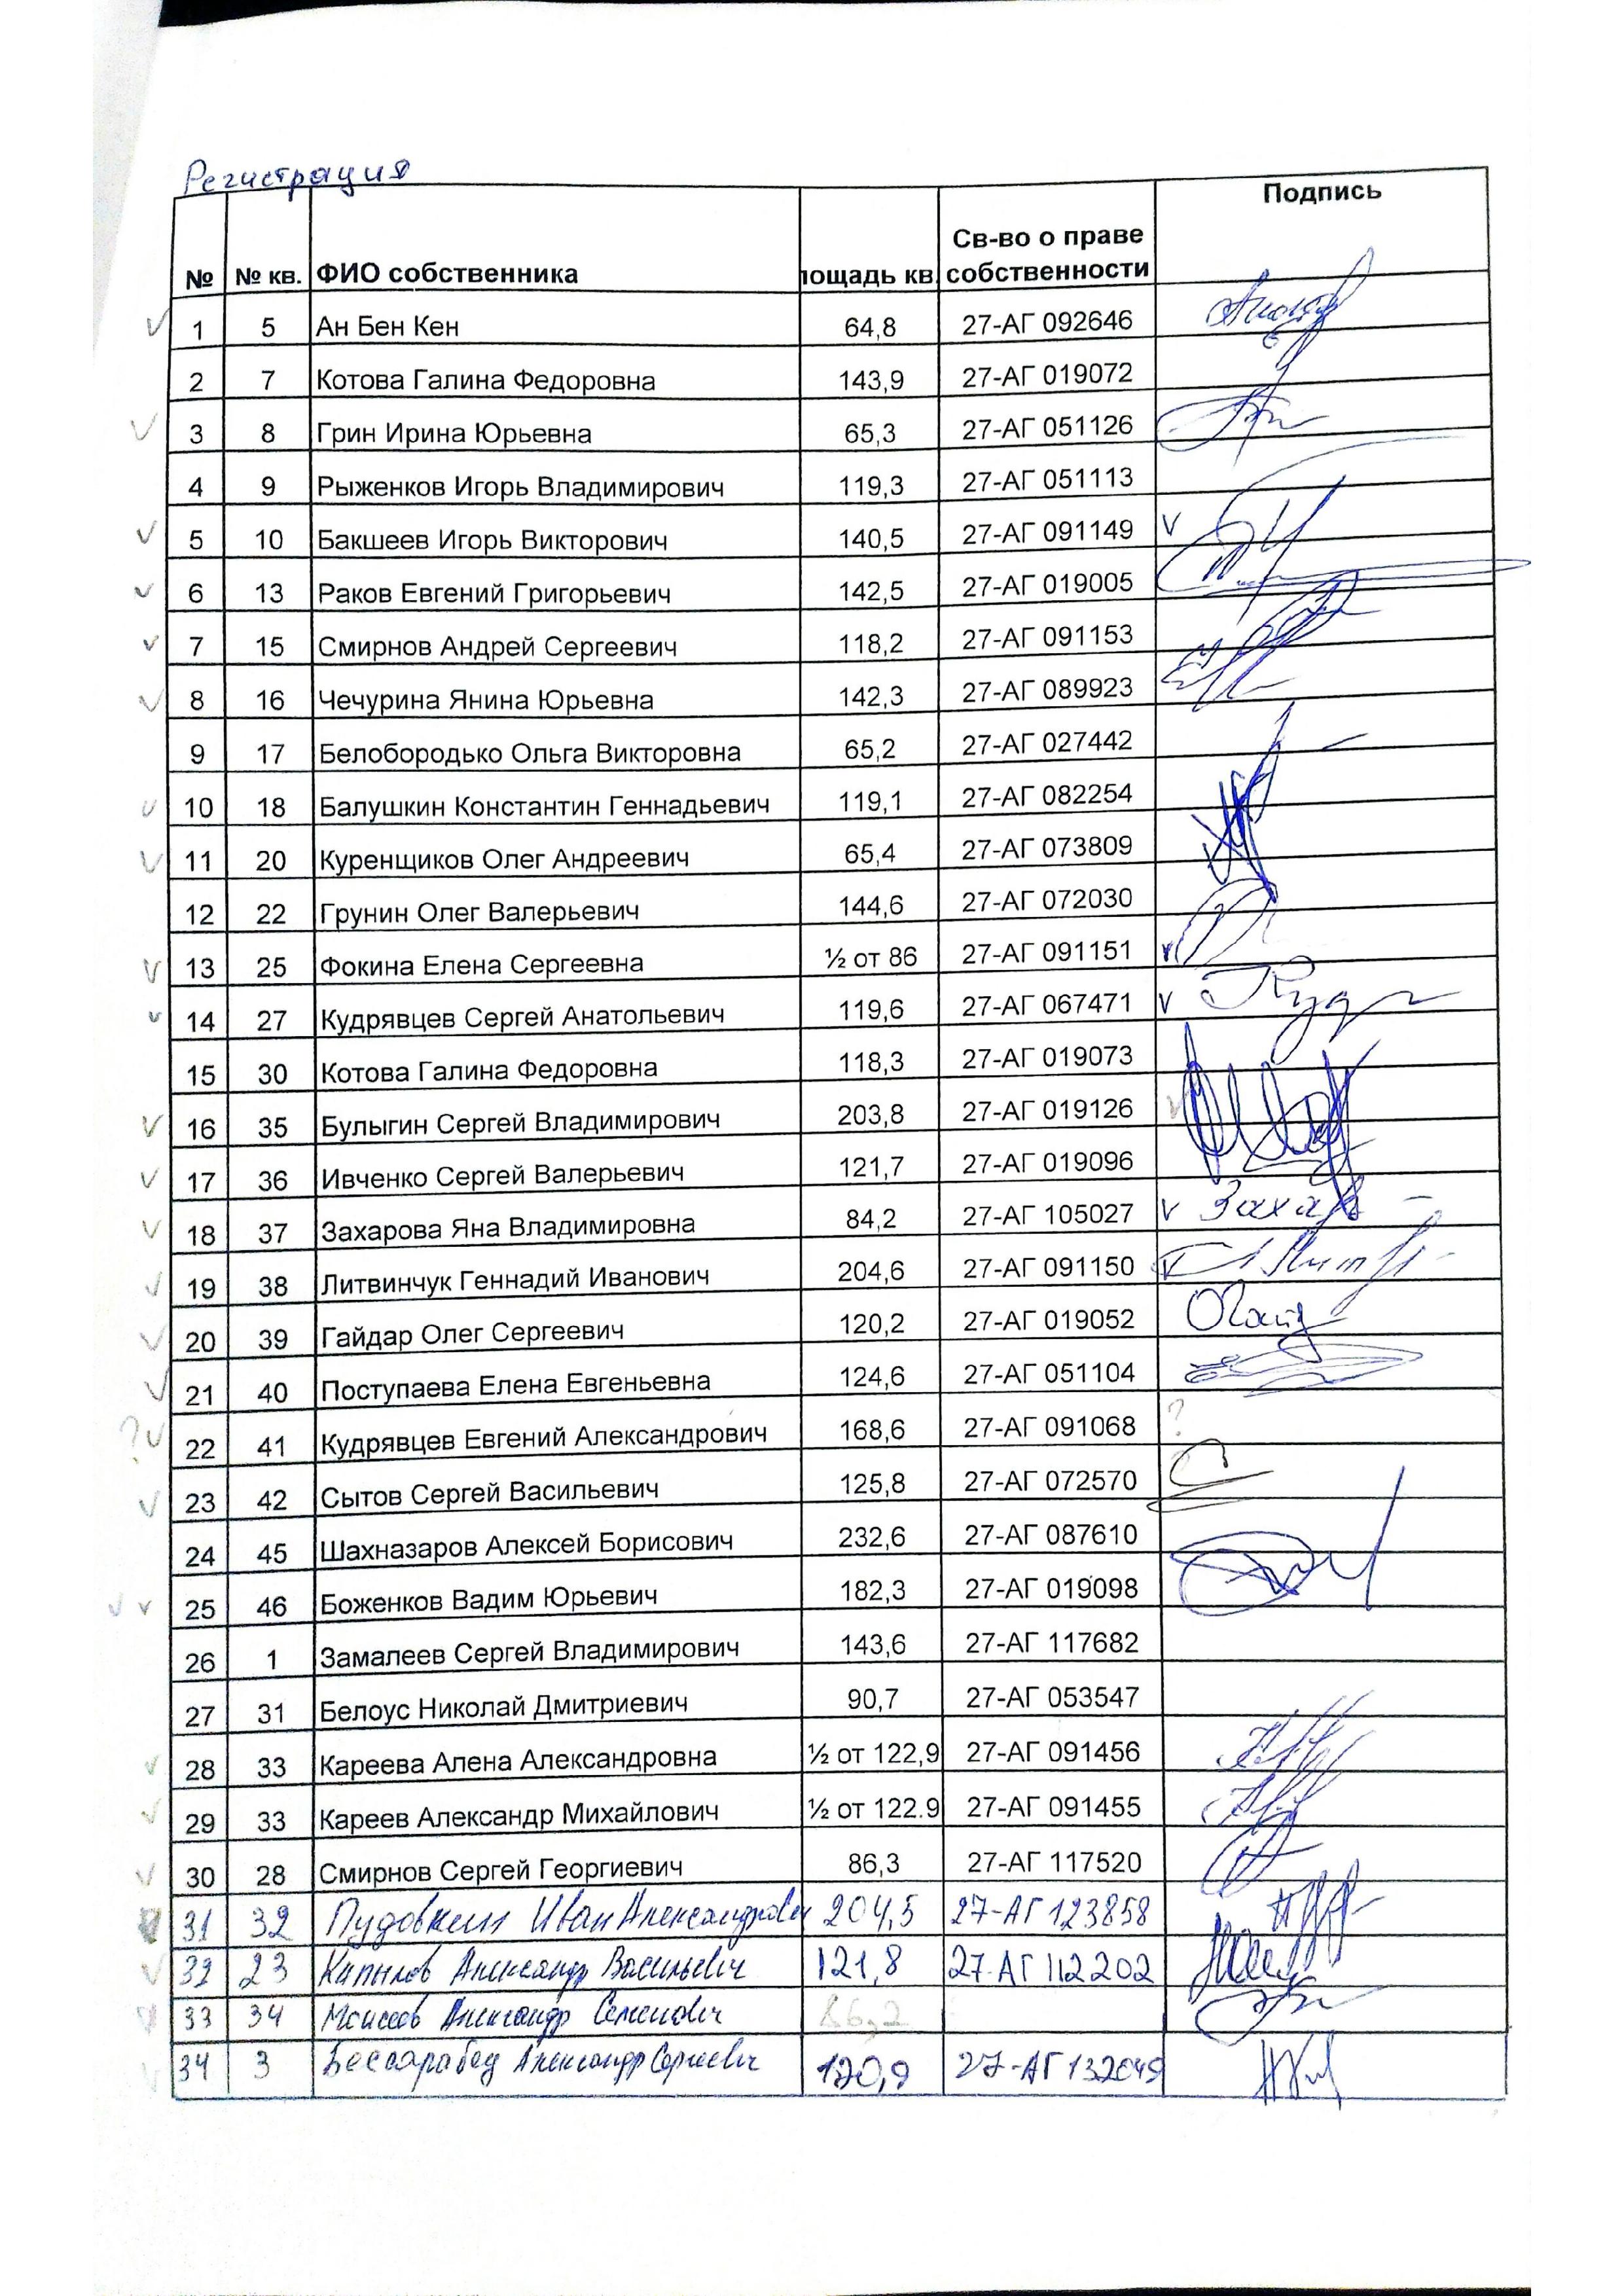 Регистрация
№ № кв. ФИО собственника лощадь кв. Св-во о праве собственности Подпись
1 5 Ан Бен Кен 64,8 27-АГ 092646
2 7 Котова Галина Федоровна 143,9 27-АГ 019072
3 8 Грин Ирина Юрьевна 65,3 27-АГ 051126
4 9 Рыженков Игорь Владимирович 119,3 27-АГ 051113
5 10 Бакшеев Игорь Викторович 140,5 27-АГ 091149
6 13 Раков Евгений Григорьевич 142,5 27-АГ 019005
7 15 Смирнов Андрей Сергеевич 118,2 27-АГ 091153
8 16 Чечурина Янина Юрьевна 142,3 27-АГ 089923
9 17 Белобородько Ольга Викторовна 65,2 27-АГ 027442
10 18 Балушкин Константин Геннадьевич 119,1 27-АГ 082254
11 20 Куренщиков Олег Андреевич 65,4 27-АГ 073809
12 22 Грунин Олег Валерьевич 144,6 27-АГ 072030
13 25 Фокина Елена Сергеевна ½ от 86 27-АГ 091151
14 27 Кудрявцев Сергей Анатольевич 119,6 27-АГ 067471
15 30 Котова Галина Федоровна 118,3 27-АГ 019073
16 35 Булыгин Сергей Владимирович 203,8 27-АГ 019126
17 36 Ивченко Сергей Валерьевич 121,7 27-АГ 019096
18 37 Захарова Яна Владимировна 84,2 27-АГ 105027
19 38 Литвинчук Геннадий Иванович 204,6 27-АГ 091150
20 39 Гайдар Олег Сергеевич 120,2 27-АГ 019052
21 40 Поступаева Елена Евгеньевна 124,6 27-АГ 051104
? 22 41 Кудрявцев Евгений Александрович 168,6 27-АГ 091068 ?
23 42 Сытов Сергей Васильевич 125,8 27-АГ 072570
24 45 Шахназаров Алексей Борисович 232,6 27-АГ 087610
25 46 Боженков Вадим Юрьевич 182,3 27-АГ 019098
26 1 Замалеев Сергей Владимирович 143,6 27-АГ 117682
27 31 Белоус Николай Дмитриевич 90,7 27-АГ 053547
28 33 Кареева Алена Александровна ½ от 122,9 27-АГ 091456
29 33 Кареев Александр Михайлович ½ от 122.9 27-АГ 091455
30 28 Смирнов Сергей Георгиевич 86,3 27-АГ 117520
31 32 Пудовкин Иван Александрович 204,5 27-АГ 123858
32 23 Копылов Александр Васильевич 121,8 27-АГ 112202
33 34 Моисеев Александр Семенович 86,2
34 3 Бессарабец Александр Сергеевич 120,9 27-АГ 132649